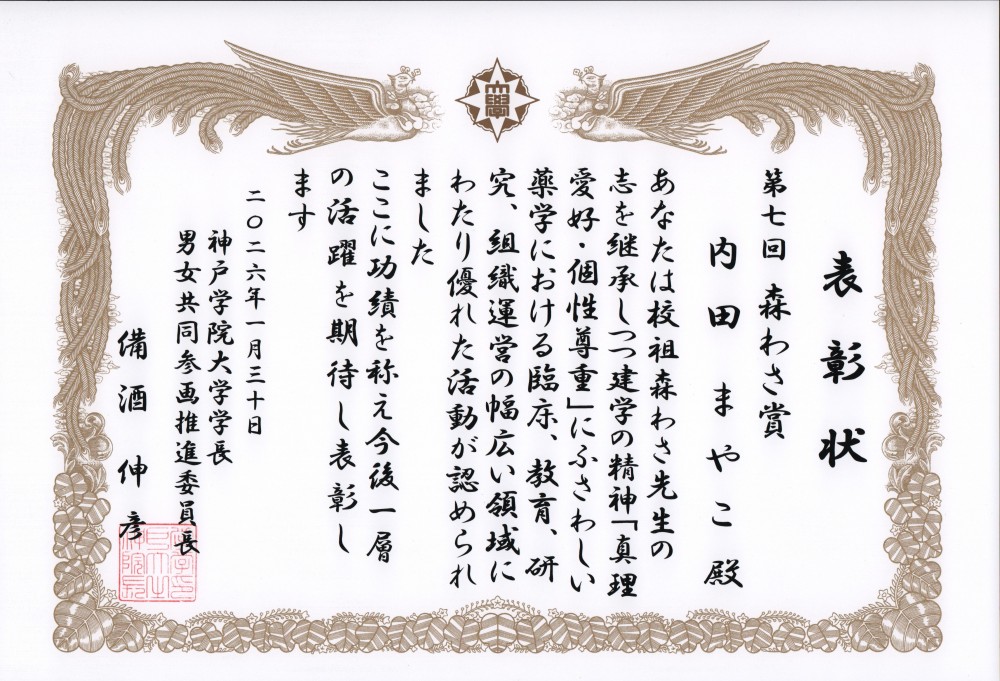 表彰状
第七回 森わさ賞
内田 まやこ 殿
あなたは校祖森わさ先生の
志を継承しつつ建学の精神「真理
愛好・個性尊重」にふさわしい
薬学における臨床、教育、研
究、組織運営の幅広い領域に
わたり優れた活動が認められ
ました
ここに功績を称え今後一層
の活躍を期待し表彰し
ます
二〇二六年一月三十日
神戸学院大学学長
男女共同参画推進委員長
備酒 伸彦
大學